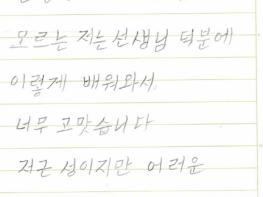 모르는 저는 선생님 덕분에
이렇게 배워와서
너무 고맛습니다
저근 성이지만 어려운